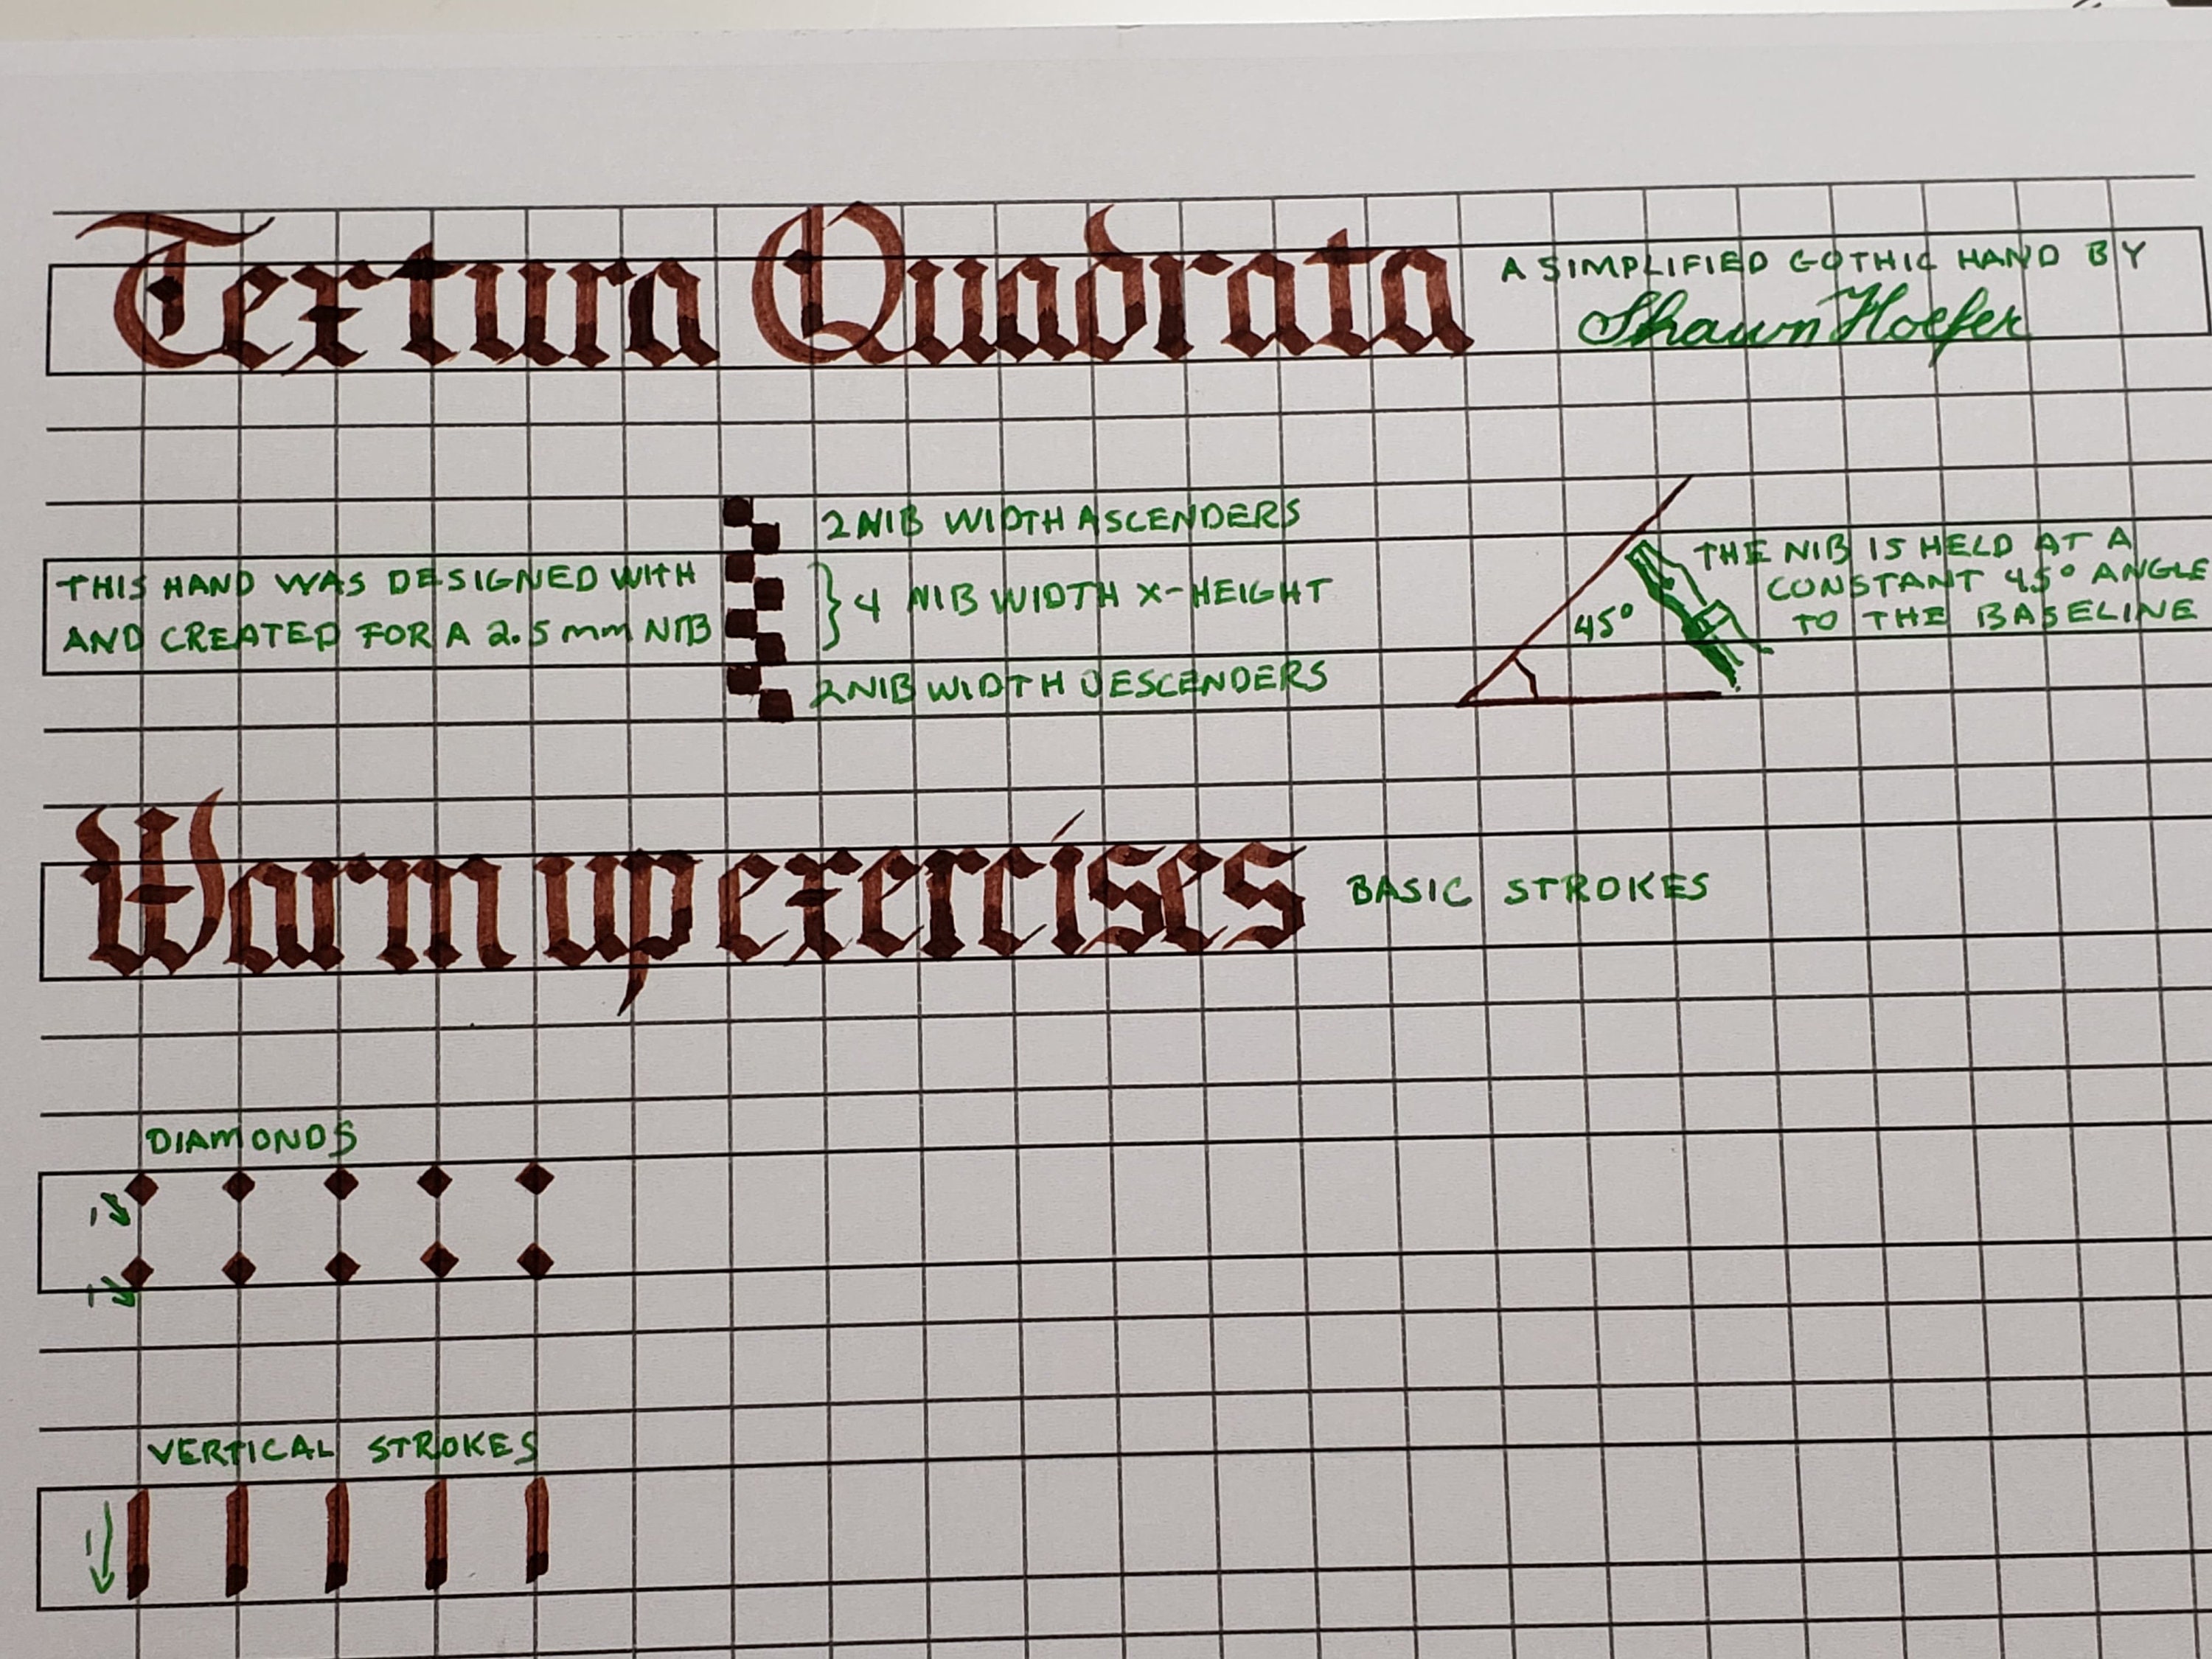 Textura Quadrata
A SIMPLIFIED GOTHIC HAND BY
Shawn Hoefer
2 NIB WIDTH ASCENDERS
THIS HAND WAS DESIGNED WITH
AND CREATED FOR A 2.5 mm NIB
4 NIB WIDTH X-HEIGHT
2 NIB WIDTH DESCENDERS
45°
THE NIB IS HELD AT A
CONSTANT 45° ANGLE
TO THE BASELINE
Warm up exercises
BASIC STROKES
DIAMONDS
1
1
VERTICAL STROKES
1